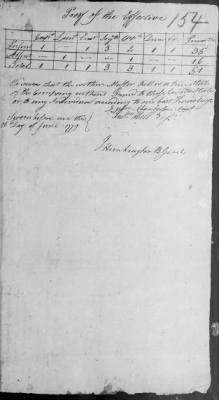 Proof of the Effective 154
Capt Lieut Ens Serjt Corpl Drum Fif Privates
Present 1 — 1 3 2 1 1 35
Absent — — — — 1 — — 16
Total 1 — 1 3 3 1 1 51
We swear that the within Muster Roll is a true State
of the Company without Fraud to these United States
or to any Individual according to our best Knowledge
Capt
Sworn before me this
Day of June 1779
J Huntington B Genl